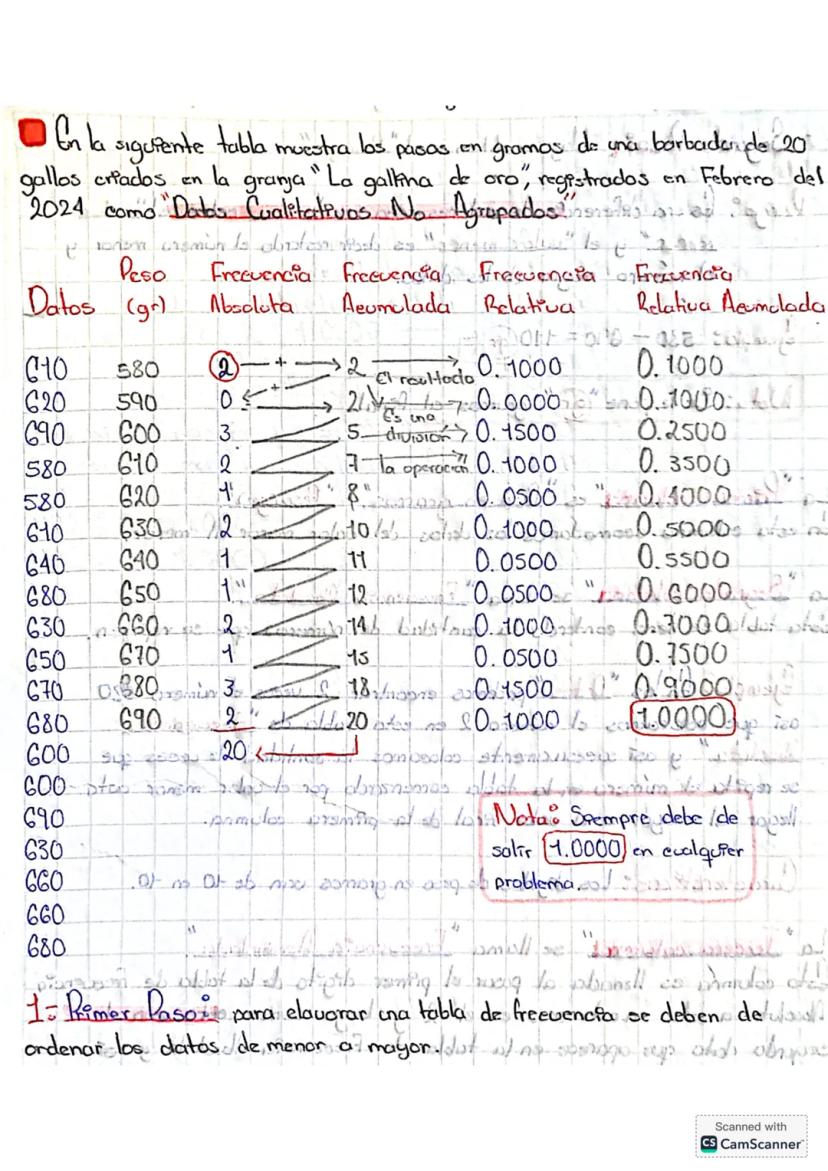 En la siguiente tabla muestra los pasos en gramos de una barbada de 20
gallos criados en la granja "La gallina de oro", registrados en Febrero del
2024 como "Datos Cualitativos No Agrupados"
Datos Peso (gr) Frecuencia Absoluta Frecuencia Acumulada Frecuencia Relativa Frecuencia Relativa Acumulada
610 580 2 + 2 El resultado 0.1000 0.1000
620 590 0 + 2 Es una 0.0000 0.1000
690 600 3 5 división 0.1500 0.2500
580 610 2 7 la operación 0.1000 0.3500
580 620 1 8 0.0500 0.4000
610 630 2 10 0.1000 0.5000
640 640 1 11 0.0500 0.5500
680 650 1 12 0.0500 0.6000
630 660 2 14 0.1000 0.7000
650 670 1 15 0.0500 0.7500
670 680 3 18 0.1500 0.9000
680 690 2 20 0.1000 1.0000
600 20
600
690
630
660
660
680
Nota: Siempre debe de
salir 1.0000 en cualquier
problema.
1- Primer Paso: para elavorar una tabla de frecuencia se deben de
ordenar los datos de menor a mayor.
Scanned with
CS CamScanner